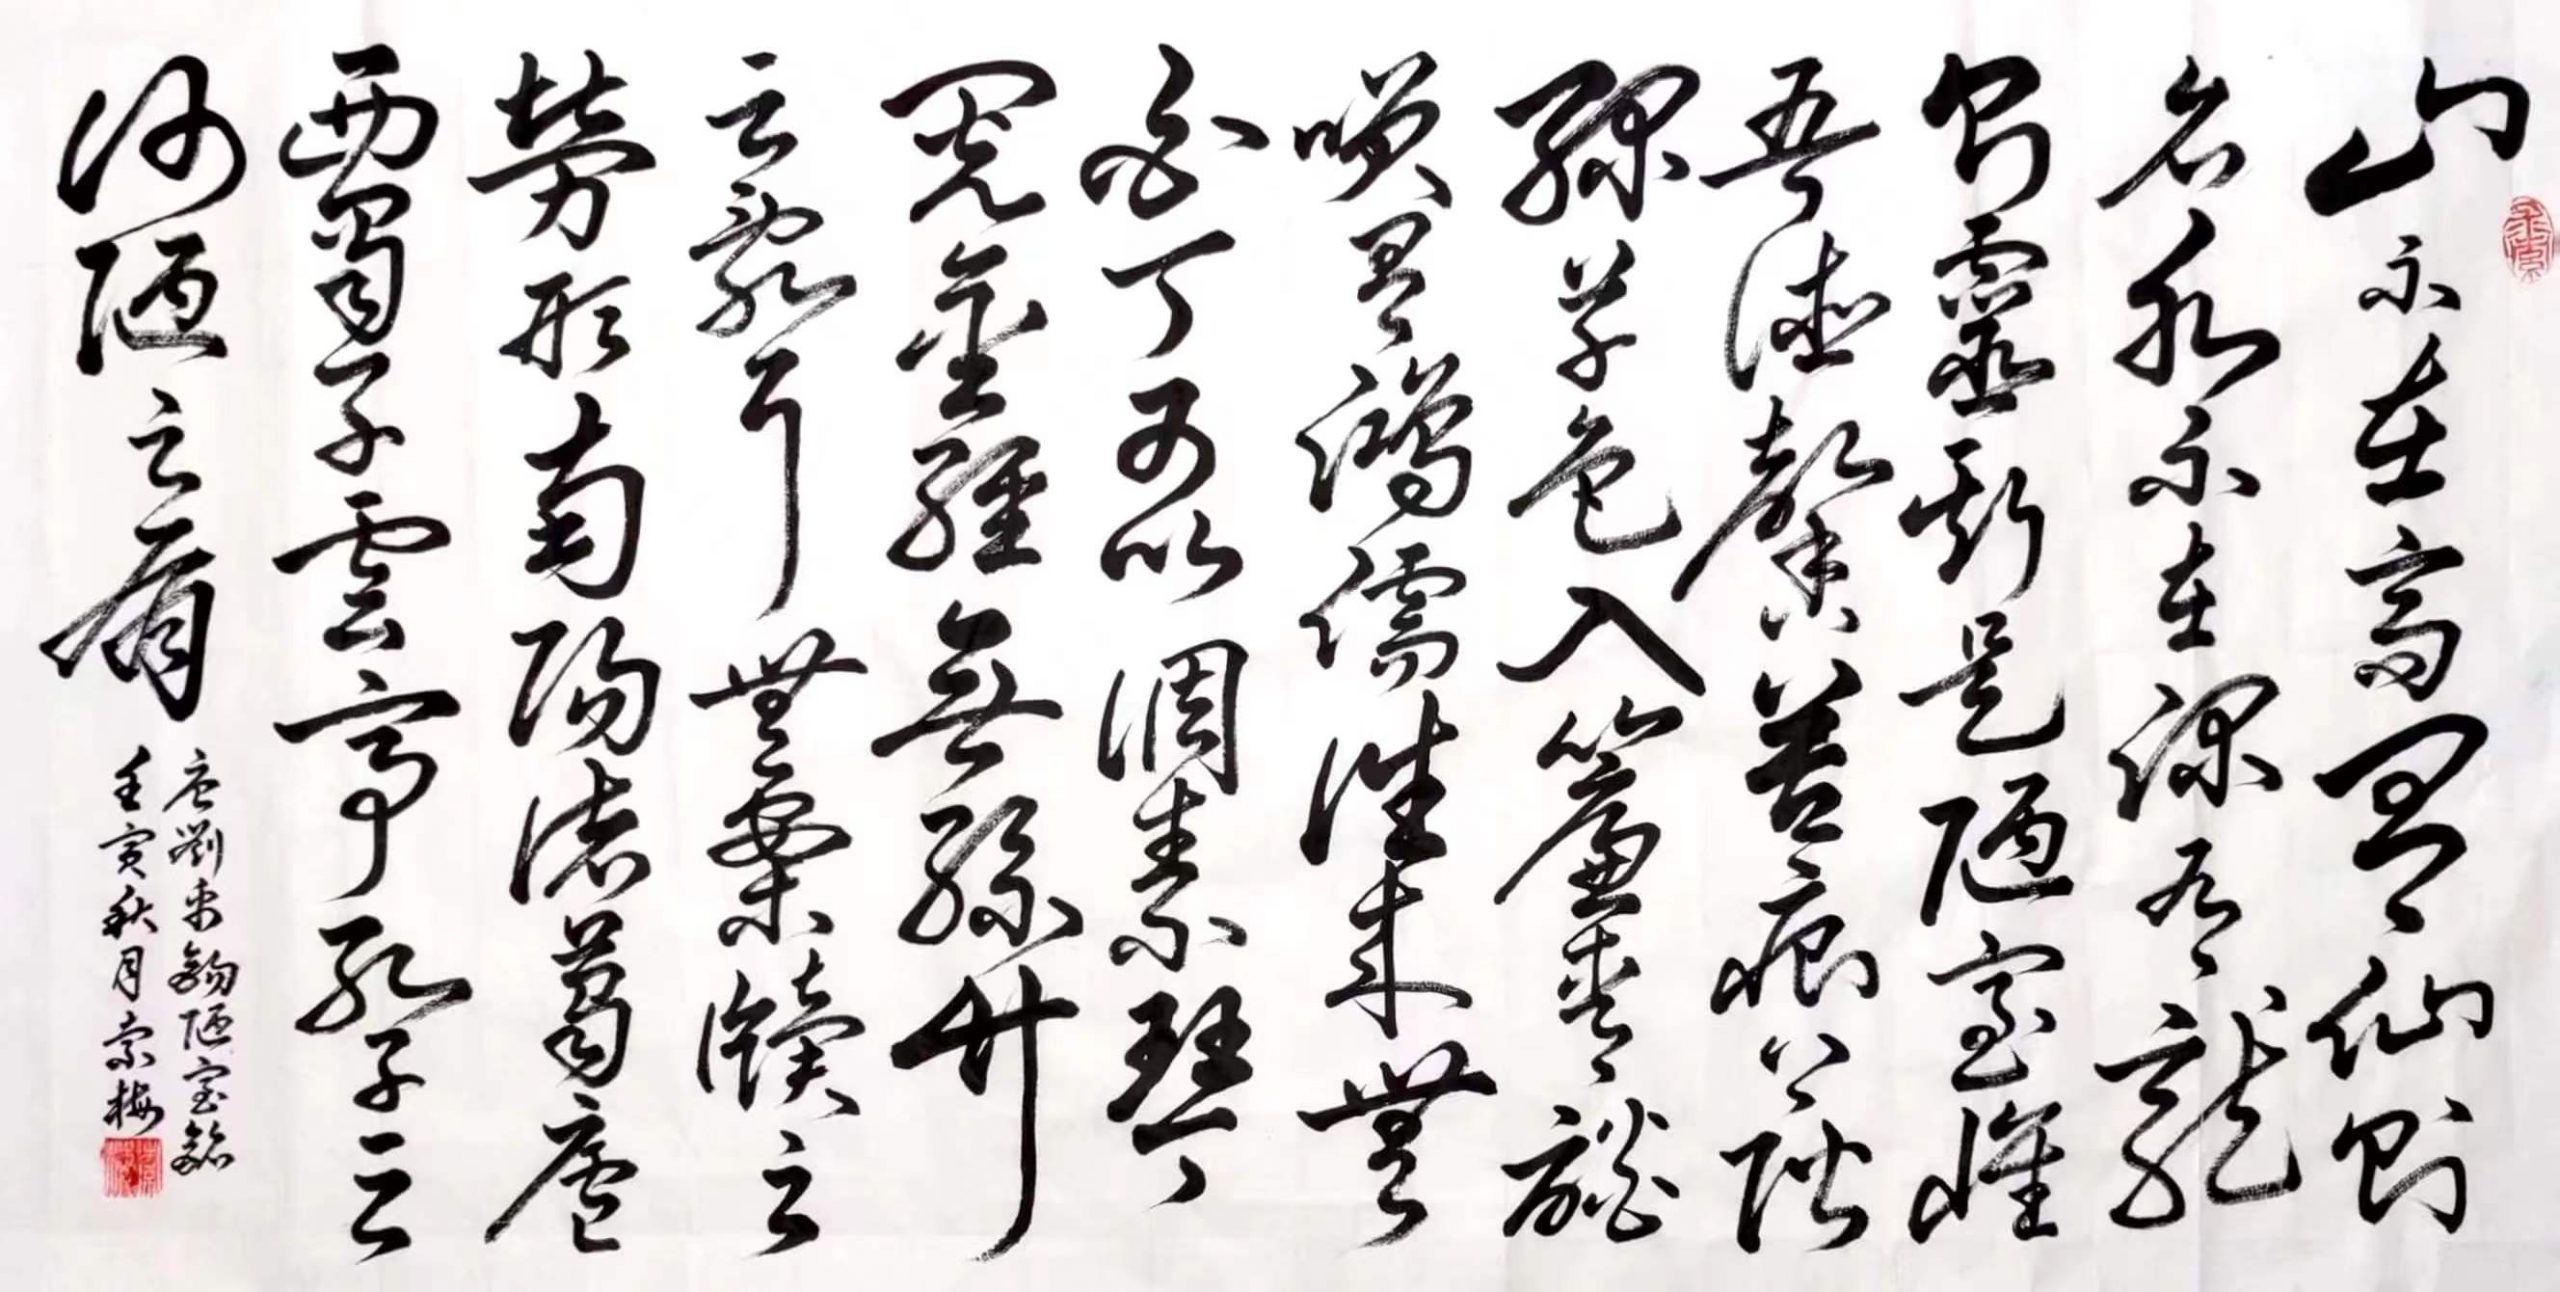 山不在高有仙則
名水不在深有龍
則靈斯是陋室惟
吾德馨苔痕上階
綠草色入簾青談
笑有鴻儒往來無
白丁可以調素琴
閱金經無絲竹
之亂耳無案牘之
勞形南陽諸葛廬
西蜀子雲亭孔子云
何陋之有
唐劉禹錫陋室銘
壬寅秋月宗梅